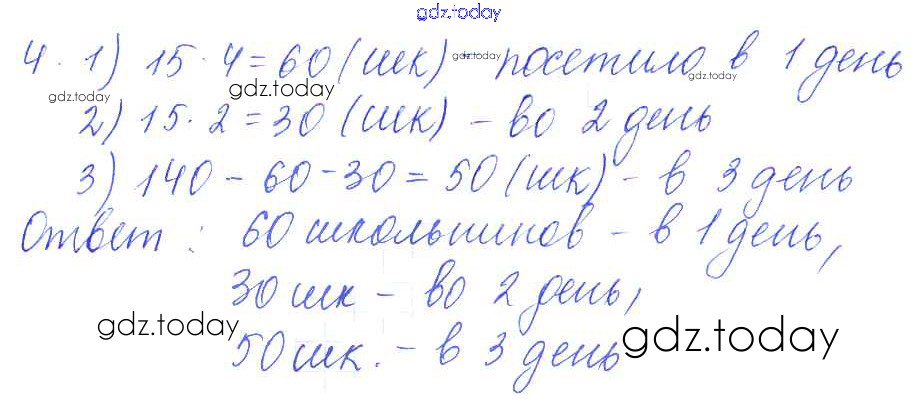 gdz.today
4. 1) 15 · 4 = 60 (шк) gdz.today – посетило в 1 день
gdz.today gdz.today
2) 15 · 2 = 30 (шк) – во 2 день
3) 140 – 60 – 30 = 50 (шк) – в 3 день
Ответ: 60 школьников – в 1 день,
30 шк – во 2 день,
gdz.today gdz.today
50 шк. – в 3 день